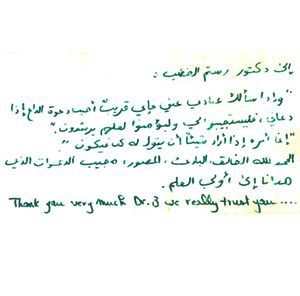 إلى دكتور رستم الخضب :
"وإذا سألك عبادي عني فإني قريب أجيب دعوة الداع إذا
دعاني، فليستجيبوا لي وليؤمنوا لعلهم يرشدون."
"إنما أمره إذا أراد شيئاً أن يقول له كن فيكون"
الحمد لله الخالق، البارئ، المصور، مجيب الدعوات الذي
هدانا إلى أولي العلم.
Thank you very much Dr. & we really trust you ....